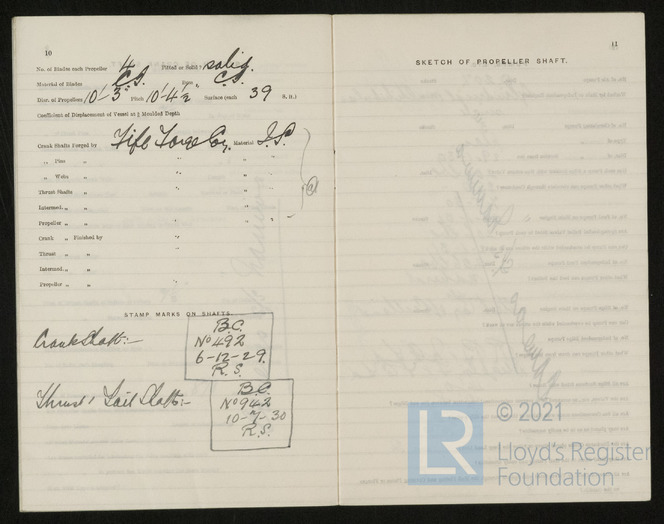 10
No. of Blades each Propeller 4 Fitted or Solid? solid.
Material of Blades C.I. Boss C.I.
Diar. of Propellers 10'-3" Pitch 10'-4½ Surface (each 39 S. ft.)
Coefficient of Displacement of Vessel at ⅘ Moulded Depth
Crank Shafts Forged by Fife Forge Coy. Material I.S.
„ Pins „ „ „
„ Webs „ „ „
Thrust Shafts „ „ „
Intermed. „ „ „ „
Propeller „ „ „ „
Crank „ Finished by „
Thrust „ „ „
Intermed. „ „ „
Propeller „ „ „
STAMP MARKS ON SHAFTS.
Crank Shaft:-
B.C.
No 492
6-12-29.
R.S.
Thrust & Tail Shaft:-
B.C.
No 942
10-7-30
R.S.
11
SKETCH OF PROPELLER SHAFT.
LR
© 2021
Lloyd's Register
Foundation